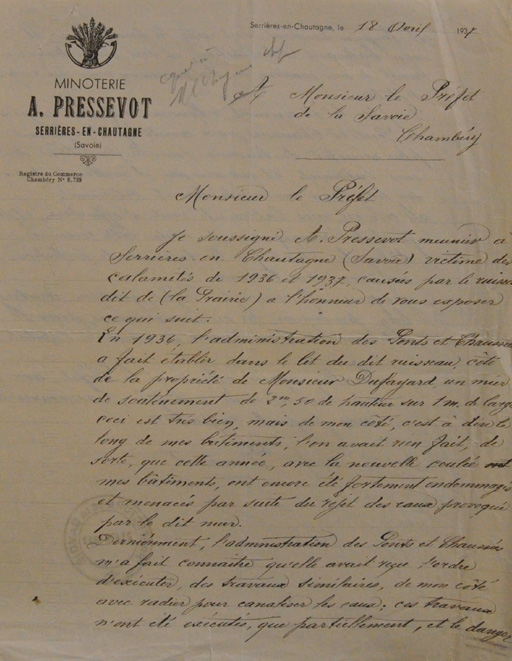 Serrières-en-Chautagne, le 18 Avril 1937
MINOTERIE
A. PRESSEVOT
SERRIÈRES-EN-CHAUTAGNE
(Savoie)
Registre du Commerce
Chambéry Nº 8.789
A Monsieur le Préfet
de la Savoie
Chambéry
Monsieur le Préfet
Je soussigné A. Pressevot meunier à
Serrières-en Chautagne (Savoie) victime des
calamités de 1936 et 1937, causées par le ruisse
dit de (la Prairie) a l'honneur de vous exposer
ce qui suit.
En 1936, l'administration des Ponts et Chaussé
a fait établir dans le lit du dit ruisseau, côté
de la propriété de Monsieur Dufayard un mur
de soutènement de 2m,50 de hauteur sur 1 m. de large
ceci est très bien, mais de mon côté, c'est à dire le
long de mes bâtiments, l'on avait rien fait, de
sorte, que cette année, avec la nouvelle coulée
mes bâtiments, ont encore été fortement endommagés
et menacés par suite du rejet des eaux provoqué
par le dit mur.
l'administration des Ponts et Chaussées
m'a fait connaître qu'elle avait reçu l'ordre
d'exécuter, des travaux similaires, de mon côté
avec radier pour canaliser les eaux; ces travaux
n'ont été exécutés, que partiellement, et le danger